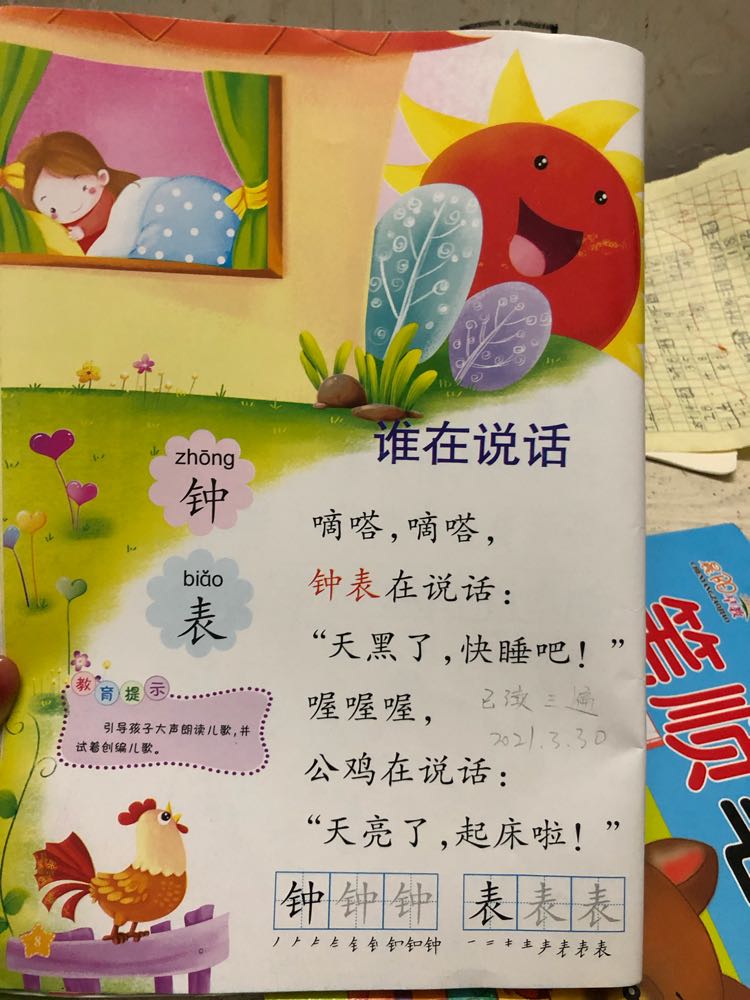 谁在说话
zhōng
钟
biǎo
表
嘀嗒,嘀嗒,
钟表在说话:
“天黑了,快睡吧!”
喔喔喔,
已读三遍
2021.3.30
公鸡在说话:
“天亮了,起床啦!”
教育提示
引导孩子大声朗读儿歌,并
试着创编儿歌。
钟钟钟
表表表
8
笔顺